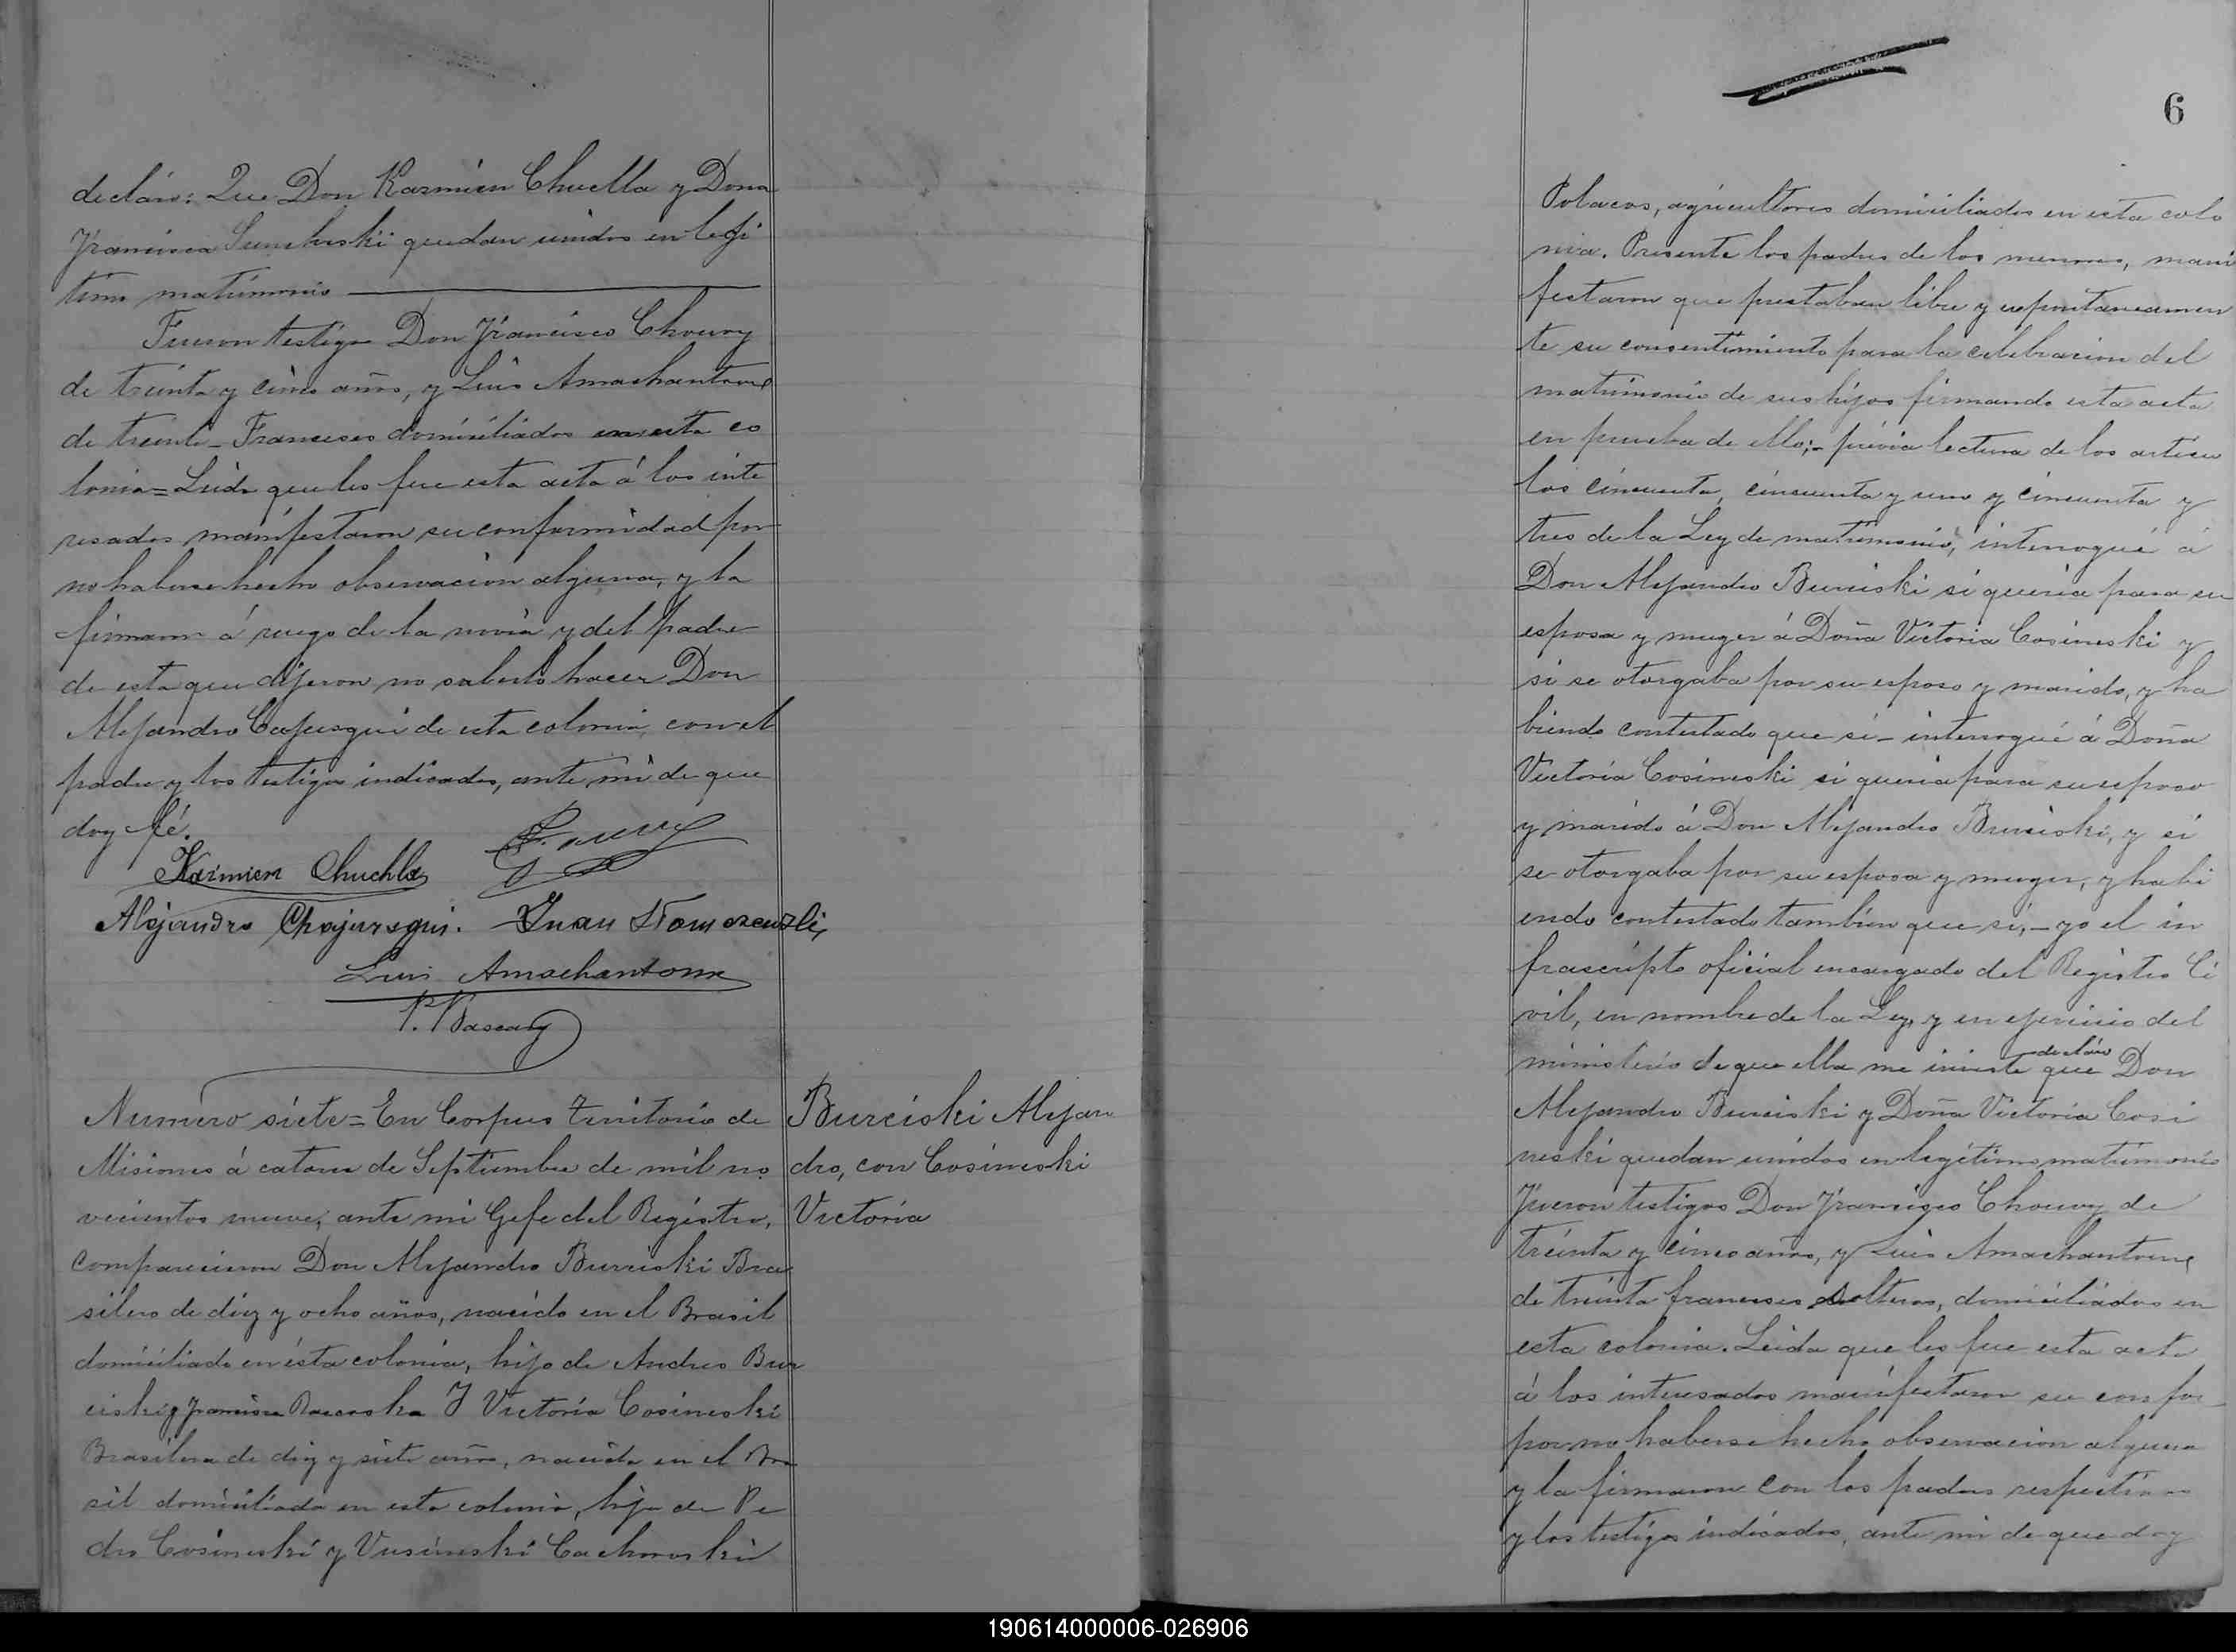 decláro: Que Don Kasmien Chuclla y Dona
Francisca quedan unidos en legi
timo matrimonio
Fueron testigos Don Francisco Chouvy
de treinta y cinco años, y Luis Amachantoux
de treinta Franceses domiciliados en esta co
lonia = Leida que les fue esta acta á los inte
resados manifestaron su conformidad por
no haberse hecho observacion alguna, y la
firmaron á ruego de la novia y del padre
de esta que dijeron no saberlo hacer Don
Alejandro de esta colonia, con el
padre y los testigos indicados, ante mi de que
doy fé.
Kazmien Chuchla
Alejandro Juan
Luis Amachantoux
Numero siete = En Corpus Territorio de
Misiones á catorce de Septiembre de mil no
vecientos nueve, ante mi Gefe del Registro,
comparecieron Don Alejandro Burciski Bra
silero de diez y ocho años, nacido en el Brasil
domiciliado en ésta colonia, hijo de Andres Bur
ciski y Francisca Y Victoria Cosineski
Brasilera de diez y siete años, nacida en el Bra
sil domiciliada en esta colonia, hija de Pe
dro Cosineski y
Burciski Alejan
dro, con Cosineski
Victoria
6
Polacos, agricultores domiciliados en esta colo
nia. Presente los padres de los menores, mani
festaron que prestaban libre y espontaneamen
te su consentimiento para la celebracion del
matrimonio de sus hijos firmando esta acta
en prueba de ello; - prévia lectura de los artícu
los cincuenta, cincuenta y uno y cincuenta y
tres de la Ley de matrimonio, interrogué á
Don Alejandro Burciski si queria para su
esposa y muger á Doña Victoria Cosineski y
si se otorgaba por su esposo y marido, y ha
biendo contestado que sí - interrogué á Doña
Victoria Cosineski si queria para su esposo
y marido á Don Alejandro Burciski, y si
se otorgaba por su esposa y muger, y habi
endo contestado tambien que sí, - yo el in
frascripto oficial encargado del Registro Ci
vil, en nombre de la Ley, y en ejercicio del
ministerio de que ella me inviste decláro que Don
Alejandro Burciski y Doña Victoria Cosi
neski quedan unidos en legítimo matrimonio
Fueron testigos Don Francisco Chouvy de
treinta y cinco años, y Luis Amachantoux
de treinta franceses solteros, domiciliados en
esta colonia. Leida que les fue esta acta
á los interesados manifestaron su confor
por no haberse hecho observacion alguna
y la firmaron con los padres respectivos
y los testigos indicados, ante mi de que doy
190614000006-026906